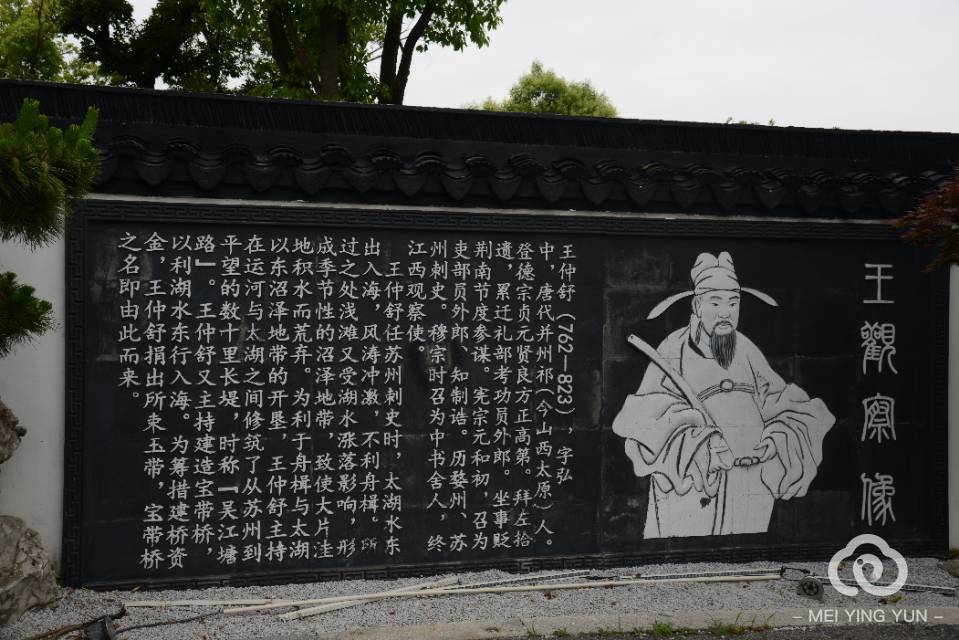 王觀察像
王仲舒（762—823），字弘
中，唐代并州祁（今山西太原）人。
登德宗贞元贤良方正高第。拜左拾
遗，累迁礼部考功员外郎。坐事贬
荆南节度参谋。宪宗元和初，召为
吏部员外郎，知制诰。历婺州、苏
州刺史。穆宗时召为中书舍人，终
江西观察使。
王仲舒任苏州刺史时，太湖水东
出入海，风涛冲激，不利舟楫。所
过之处浅滩又受湖水涨落影响，形
成季节性的沼泽地带，致使大片洼
地积水而荒弃。为利于舟楫与太湖
以东沼泽地带的开垦，王仲舒主持
在运河与太湖之间修筑了从苏州到
平望的数十里长堤，时称「吴江塘
路」。王仲舒又主持建造宝带桥，
以利湖水东行入海。为筹措建桥资
金，王仲舒捐出所束玉带，宝带桥
之名即由此而来。
– MEI YING YUN –